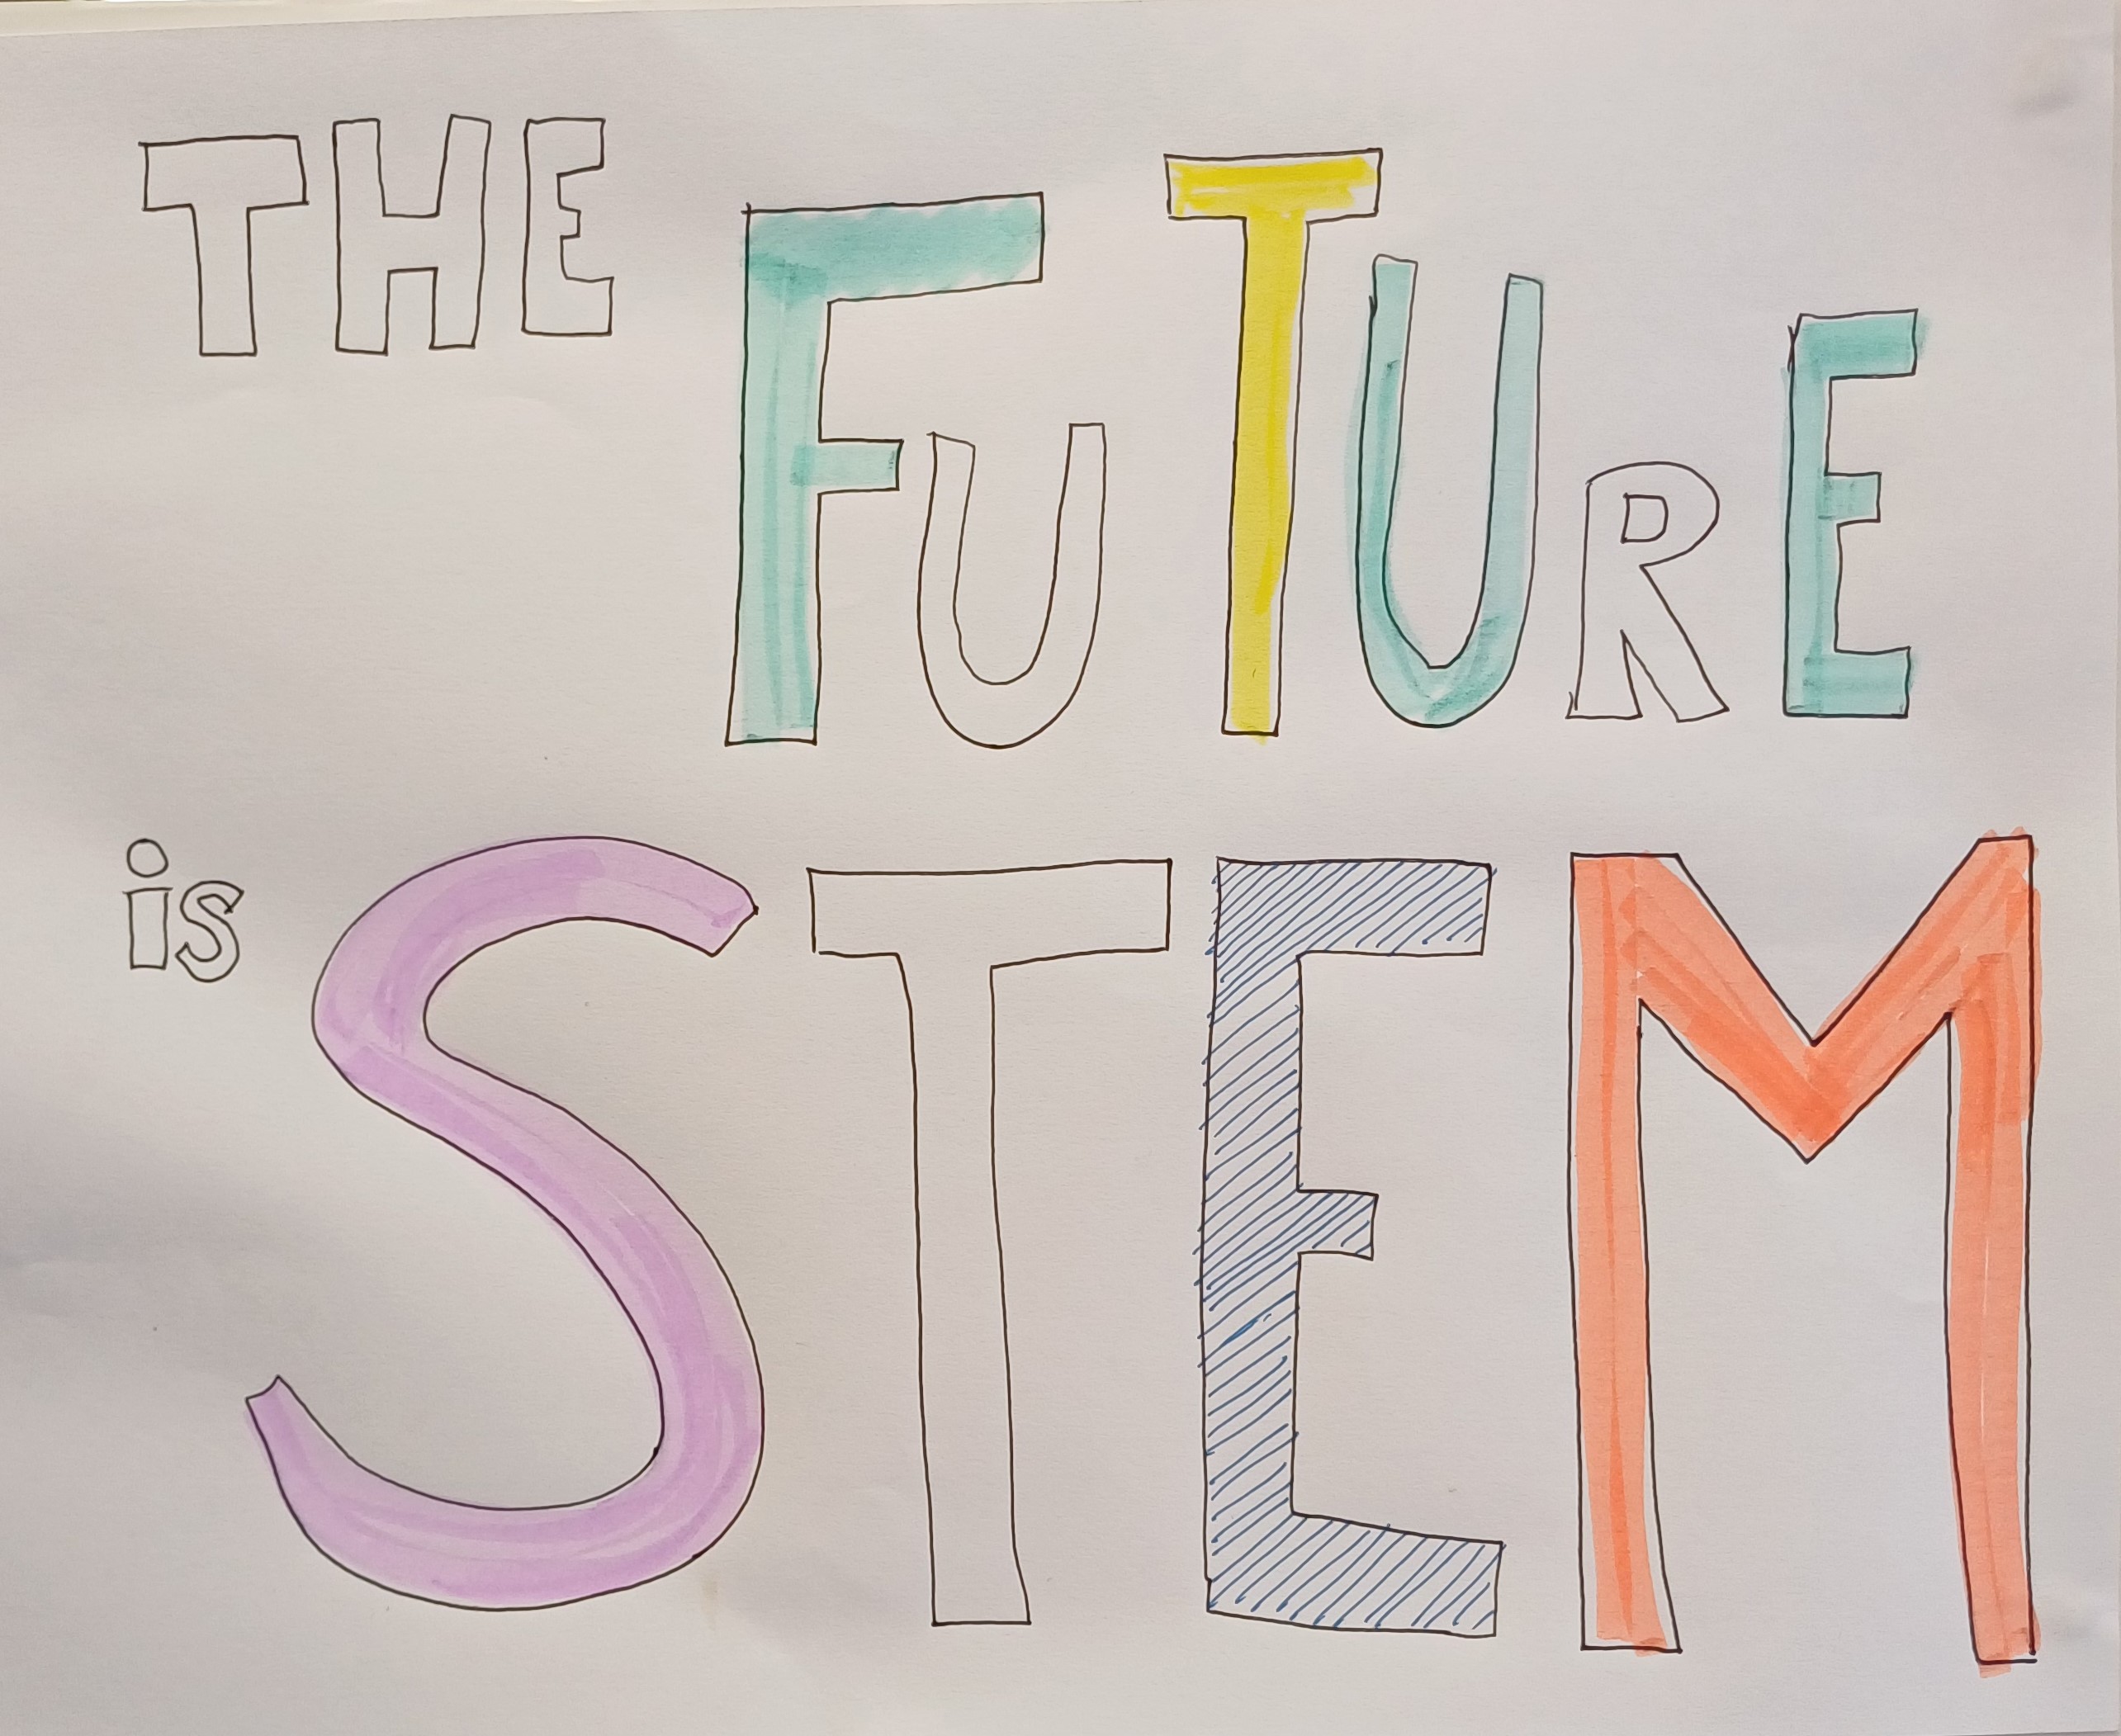 THE FUTURE
is STEM